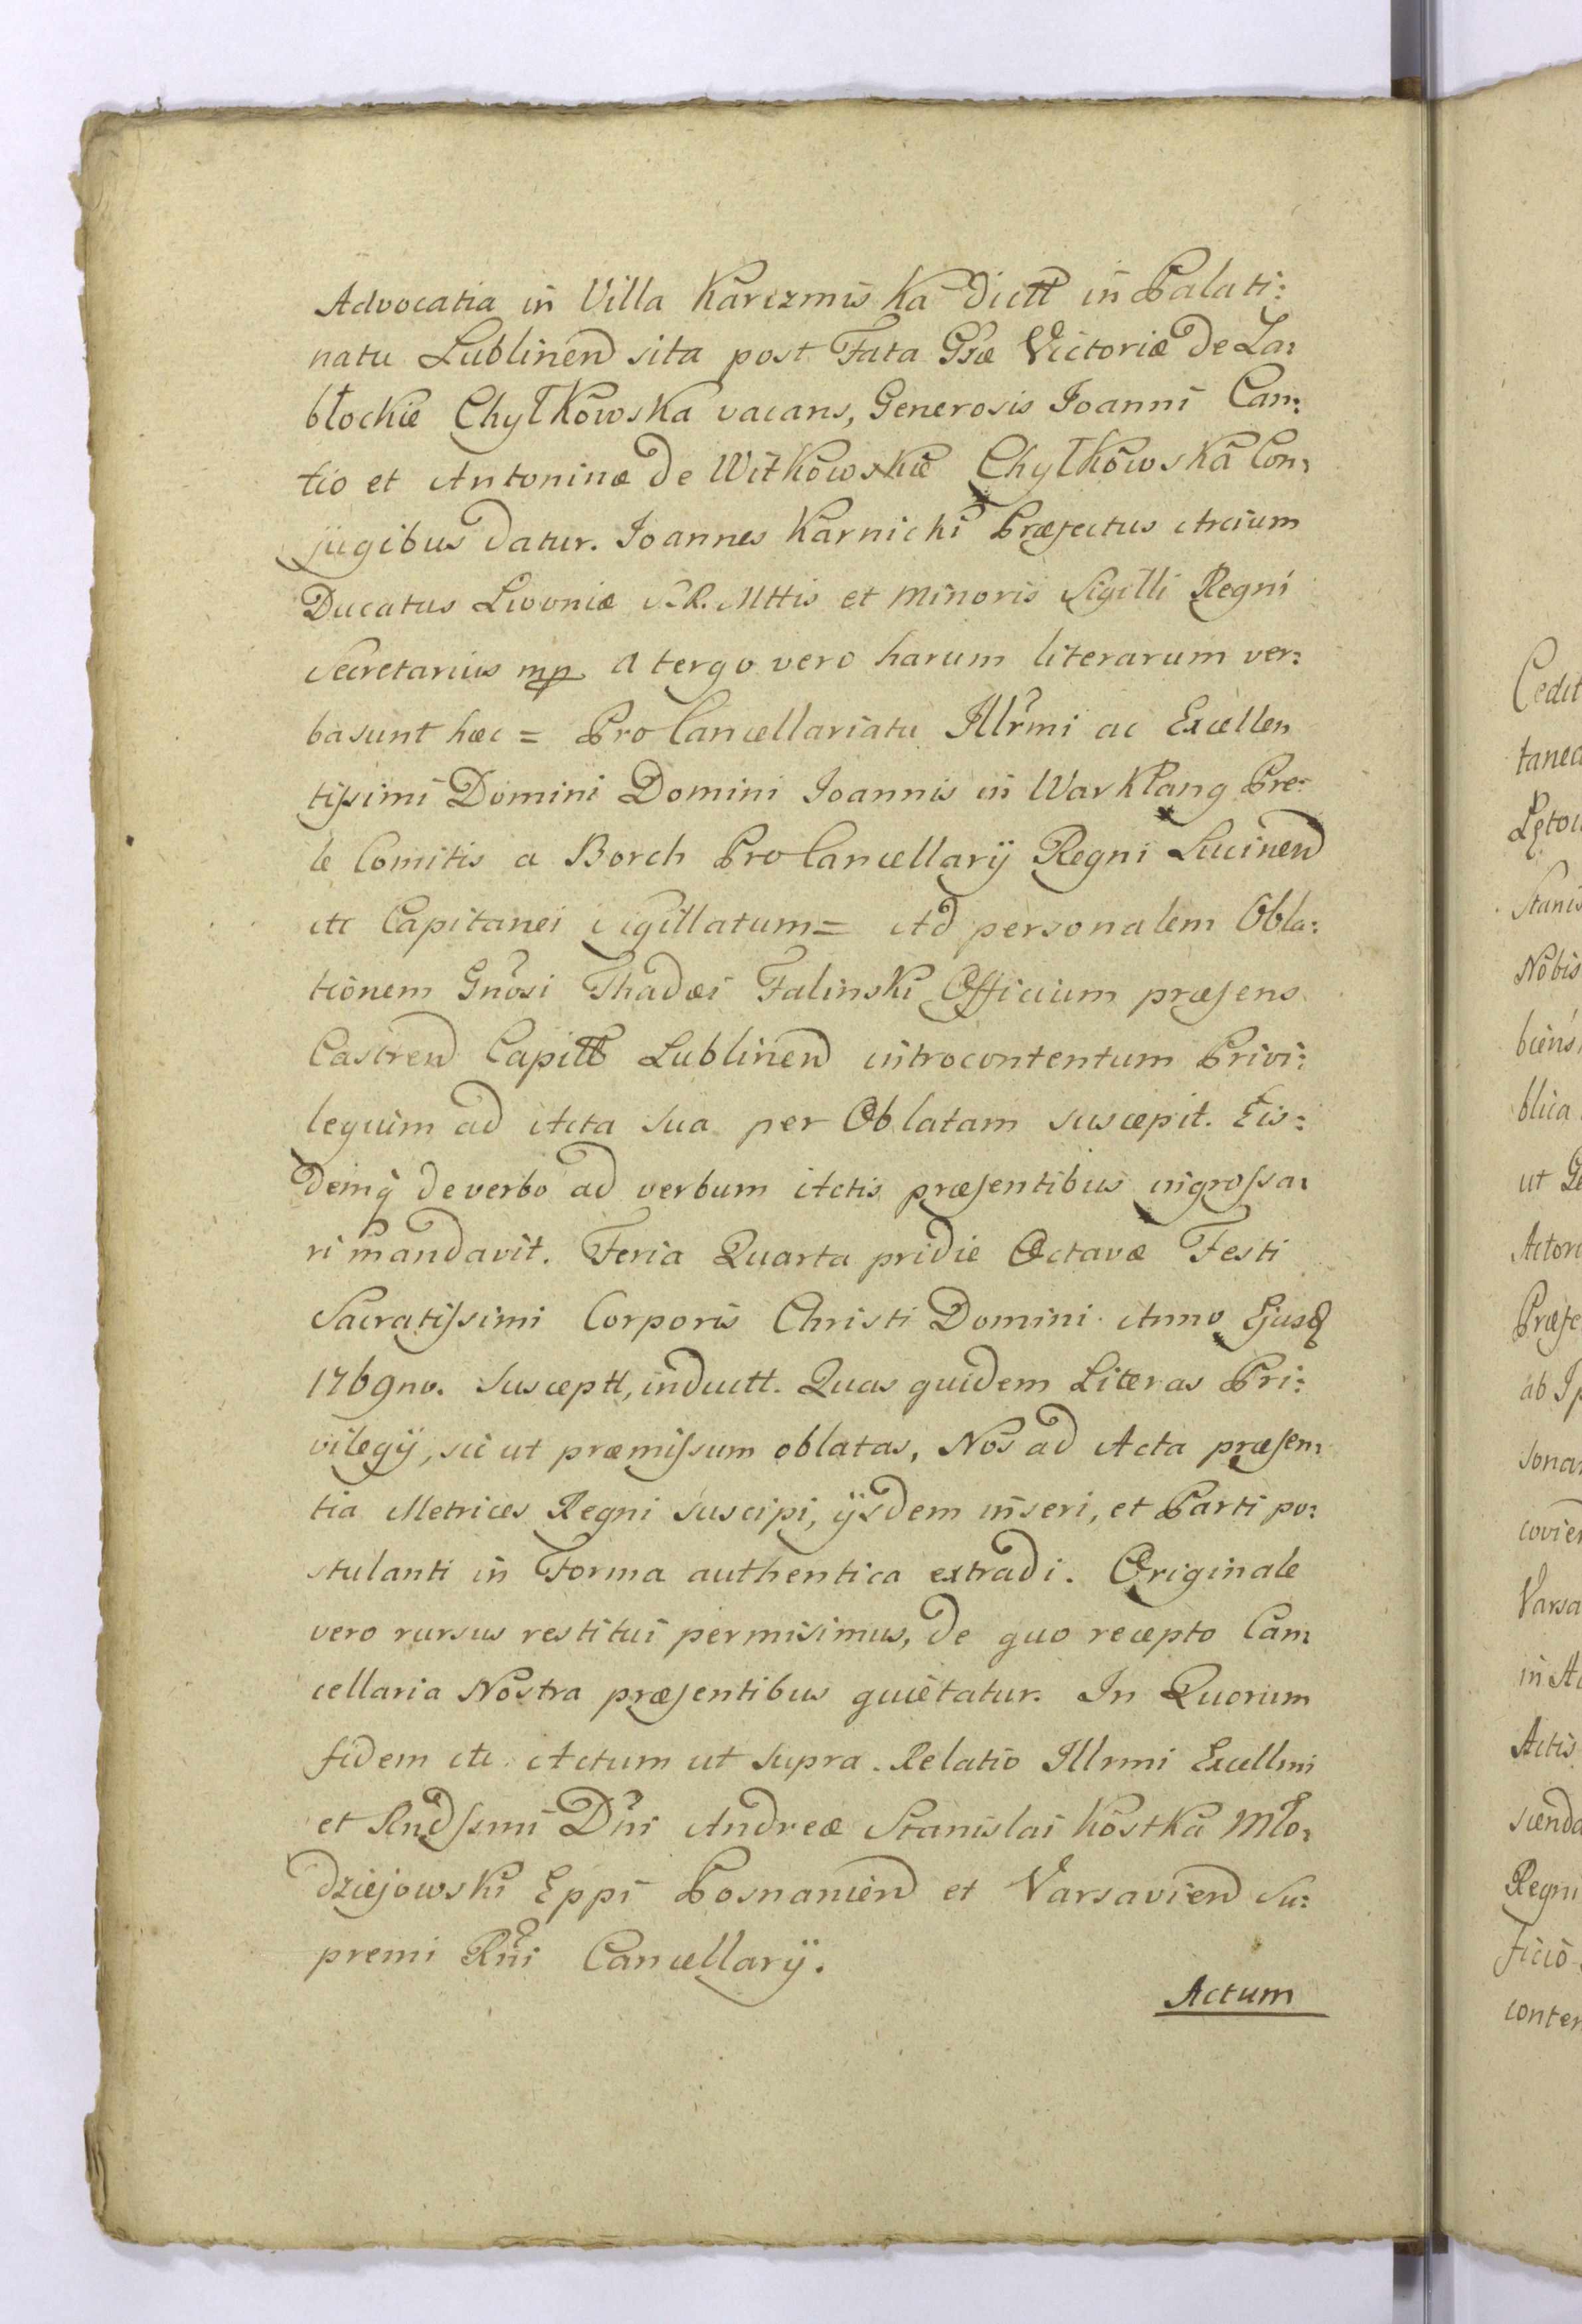 Advocatia in Villa Karczmiska dictt in Palati:
natu Lublinen sita post Fata Gsæ Victoriæ de Za:
błockie Chylkowska vacans, Generosis Joanni Can:
tio et Antoninæ de Witkowskie Chylkowska Con:
jugibus datur. Joannes Karnicki Præfectus Arcium
Ducatus Livoniæ S. R. Mttis et minoris Sigilli Regni
Secretarius mp. a tergo vero harum literarum ver:
ba sunt hæc = Pro Cancellariatu Illrmi ac Excellen
tissimi Domini Domini Joannis in Warklang Pre:
le Comitis a Borch Pro Cancellarÿ Regni Lucinen
etc Capitanei Sigillatum = Ad personalem Obla:
tionem Gnosi Thadæi Falinski Officium præsens
Castren Capitt Lublinen introcontentum Privi:
legium ad Acta sua per Oblatam suscepit. Eis:
demq̃ de verbo ad verbum Actis præsentibus ingrossa:
ri mandavit. Feria Quarta pridie Octavæ Festi
Sacratissimi Corporis Christi Domini Anno Ejusd
1769no. susceptt, inductt. Quas quidem Literas Pri:
vilegÿ, sic ut præmissum oblatas, Nos ad Acta præsen:
tia Metrices Regni suscipi, ÿsdem inseri, et Parti po:
stulanti in Forma authentica extradi. Originale
vero rursus restitui permisimus, de quo recepto Can:
cellaria Nostra præsentibus quietatur. In Quorum
fidem etc. Actum ut supra. Relatio Illrmi Excellmi
et Rndssmi Dni Andreæ Stanislai Kostka Mło:
dziejowski Eppi Posnanien et Varsavien Su:
premi Rni Cancellarÿ.
Actum
Cedit
tanea
Stanis
Nobis
biens
blica
ut Ge
Actor
Præse
ab Ip
sona
covien
Varsa
in Ac
Actis
scenda
Regni
ficio
conten